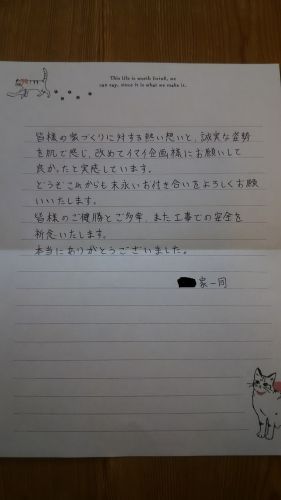 This life is worth living, we
can say, since it is what we make it.
皆様の家づくりに対する熱い想いと、誠実な姿勢
を肌で感じ、改めてイマイ企画様にお願いして
良かったと実感しています。
どうぞこれからも末永いお付き合いをよろしくお願
いいたします。
皆様のご健勝とご多幸、また工事での安全を
祈念いたします。
本当にありがとうございました。
家一同